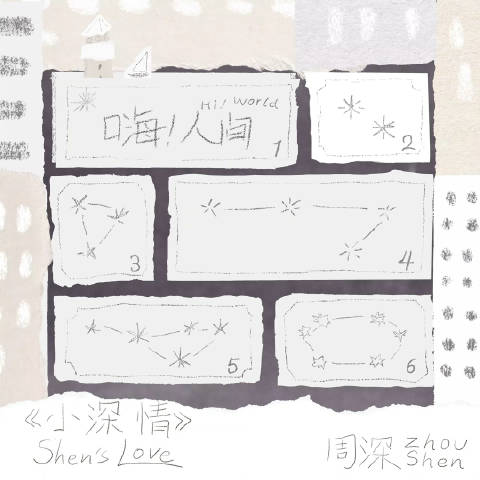 Hi! World
嗨!人间
1
2
3
4
5
6
《小深情》
Shen's Love
周深 Zhou Shen